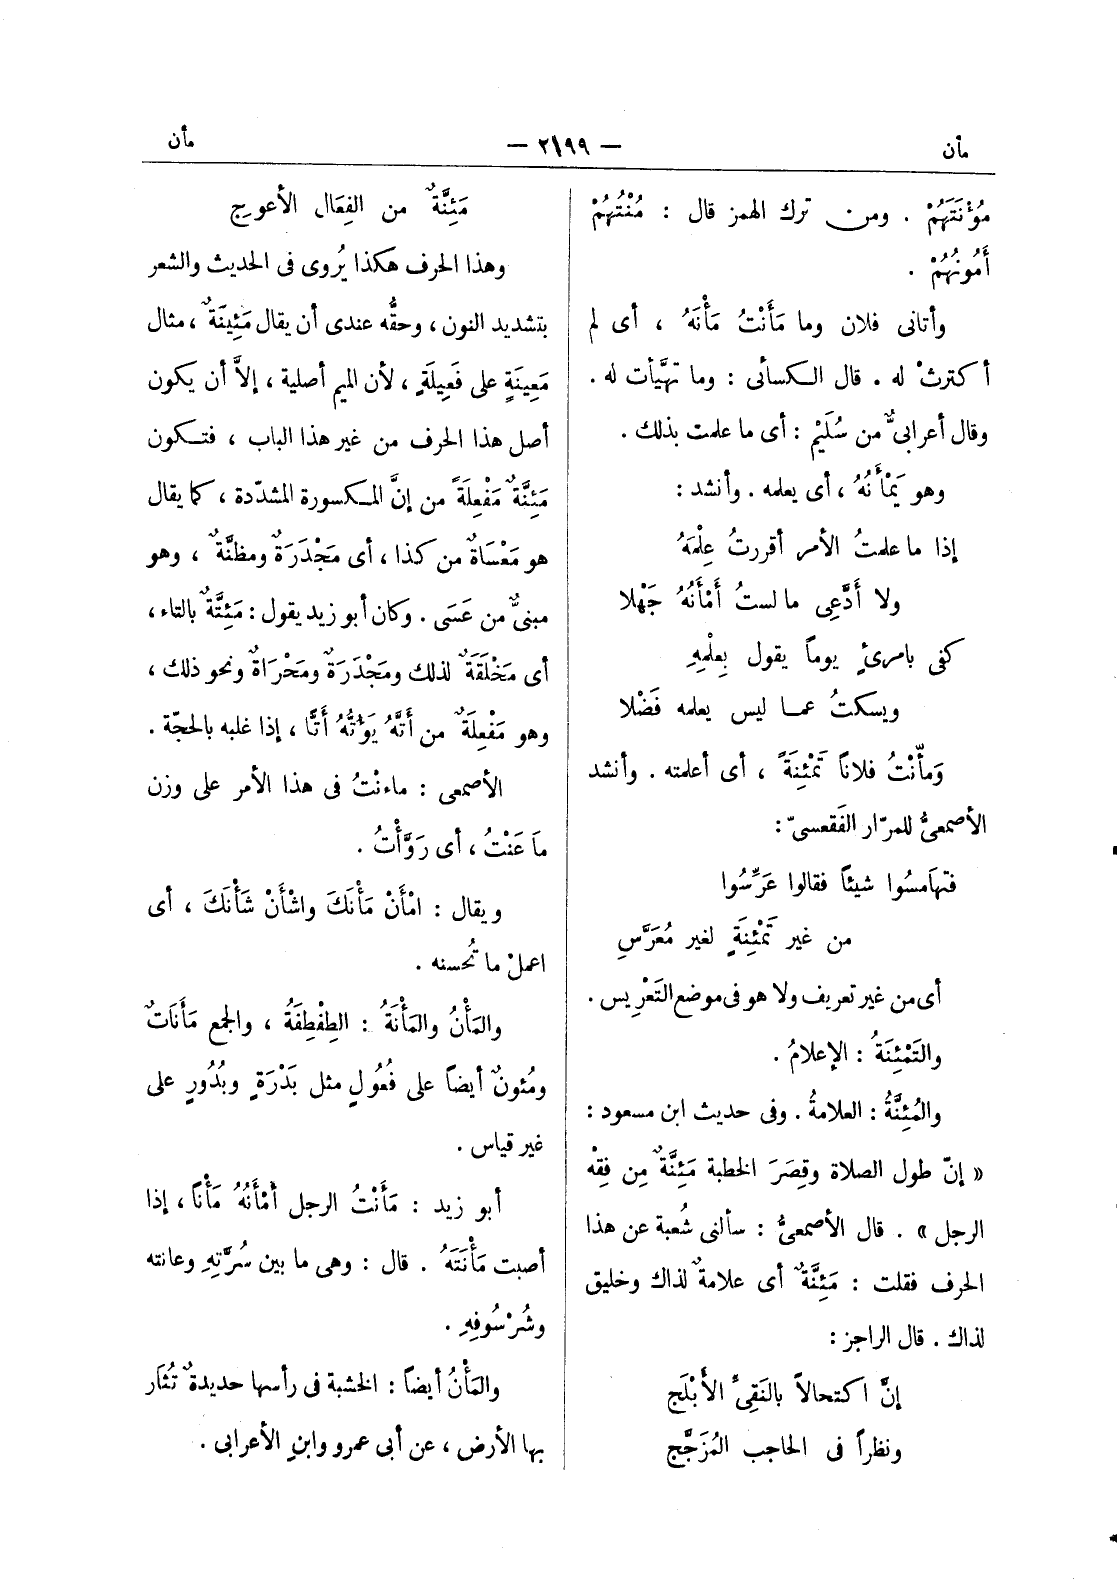 مأن
— ٢١٩٩ —
مأن
مَؤُنَتَهُمْ . ومن ترك الهمز قال : مُنْتُهُمْ
أَمُونُهُمْ .
وأتانى فلان وما مَأَنْتُ مَأْنَهُ ، أى لم
أكترثْ له . قال الكسائى : وما تهيَّأت له .
وقال أعرابىٌّ من سُلَيْمٍ : أى ما علمت بذلك .
وهو يَمْأَنُهُ ، أى يعلمه . وأنشد :
إذا ما علمتُ الأمر أقررتُ عِلْمَهُ
ولا أَدَّعِى ما لستُ أَمْأَنُهُ جَهْلا
كفى بامرئٍ يوماً يقول بِعِلْمِهِ
ويسكتُ عما ليس يعلمه فَضْلا
وَمأَّنْتُ فلاناً تَمْئِنَةً ، أى أعلمته . وأنشد
الأصمعىُّ للمرّار الفَقعسىّ :
فتهامسُوا شيئاً فقالوا عَرِّسُوا
من غير تَمْئِنَةٍ لغير مُعَرَّسِ
أى من غير تعريف ولا هو فى موضع التَعْرِيس .
والتَمْئِنَةُ : الإعلامُ .
والمَئِنَّةُ : العلامةُ . وفى حديث ابن مسعود :
« إنّ طول الصلاة وقِصَرَ الخطبة مَئِنَّةٌ مِن فِقْهِ
الرجل » . قال الأصمعىُّ : سألنى شُعبة عن هذا
الحرف فقلت : مَئِنَّةٌ أى علامةٌ لذاك وخليق
لذاك . قال الراجز :
إنَّ اكتحالاً بالنَقِىِّ الأَبْلَجِ
ونظراً فى الحاجب المُزَجَّجِ
مَئِنَّةٌ من الفِعَال الأعوجِ
وهذا الحرف هكذا يُروى فى الحديث والشعر
بتشديد النون ، وحقُّه عندى أن يقال مَئِينَةٌ ، مثال
مَعِينَةٍ على فَعِيلَةٍ ، لأن الميم أصلية ، إلاَّ أن يكون
أصل هذا الحرف من غير هذا الباب ، فتكون
مَئِنَّةٌ مَفْعِلَةً من إنَّ المكسورة المشدّدة ، كما يقال
هو مَعْسَاةٌ من كذا ، أى مَجْدَرَةٌ ومظنَّةٌ ، وهو
مبنىٌّ من عَسَى . وكان أبو زيد يقول : مَئِتَّةٌ بالتاء ،
أى مَخْلَقَةٌ لذلك ومَجْدَرَةٌ ومَحْرَاةٌ ونحو ذلك ،
وهو مَفْعِلَةٌ من أَتَّهُ يَؤُتُّهُ أَتًّا ، إذا غلبه بالحجّة .
الأصمعى : ماءنْتُ فى هذا الأمر على وزن
مَاعَنْتُ ، أى رَوَّأْتُ .
ويقال : امْأَنْ مَأْنَكَ واشْأَنْ شَأْنَكَ ، أى
اعملْ ما تُحسنه .
والمَأْنُ والمَأْنَةُ : الطِفْطِفَةُ ، والجمع مَأَنَاتٌ
ومُئونٌ أيضاً على فُعُولٍ مثل بَدْرَةٍ وبُدُورٍ على
غير قياس .
أبو زيد : مَأَنْتُ الرجل أَمْأَنُهُ مَأْناً ، إذا
أصبت مَأْنَتَهُ . قال : وهى ما بين سُرَّتِهِ وعانته
وشُرْسُوفِهِ .
والمَأْنُ أيضاً : الخشبة فى رأسها حديدةٌ تُثَار
بها الأرض ، عن أبى عمرو وابنِ الأعرابى .